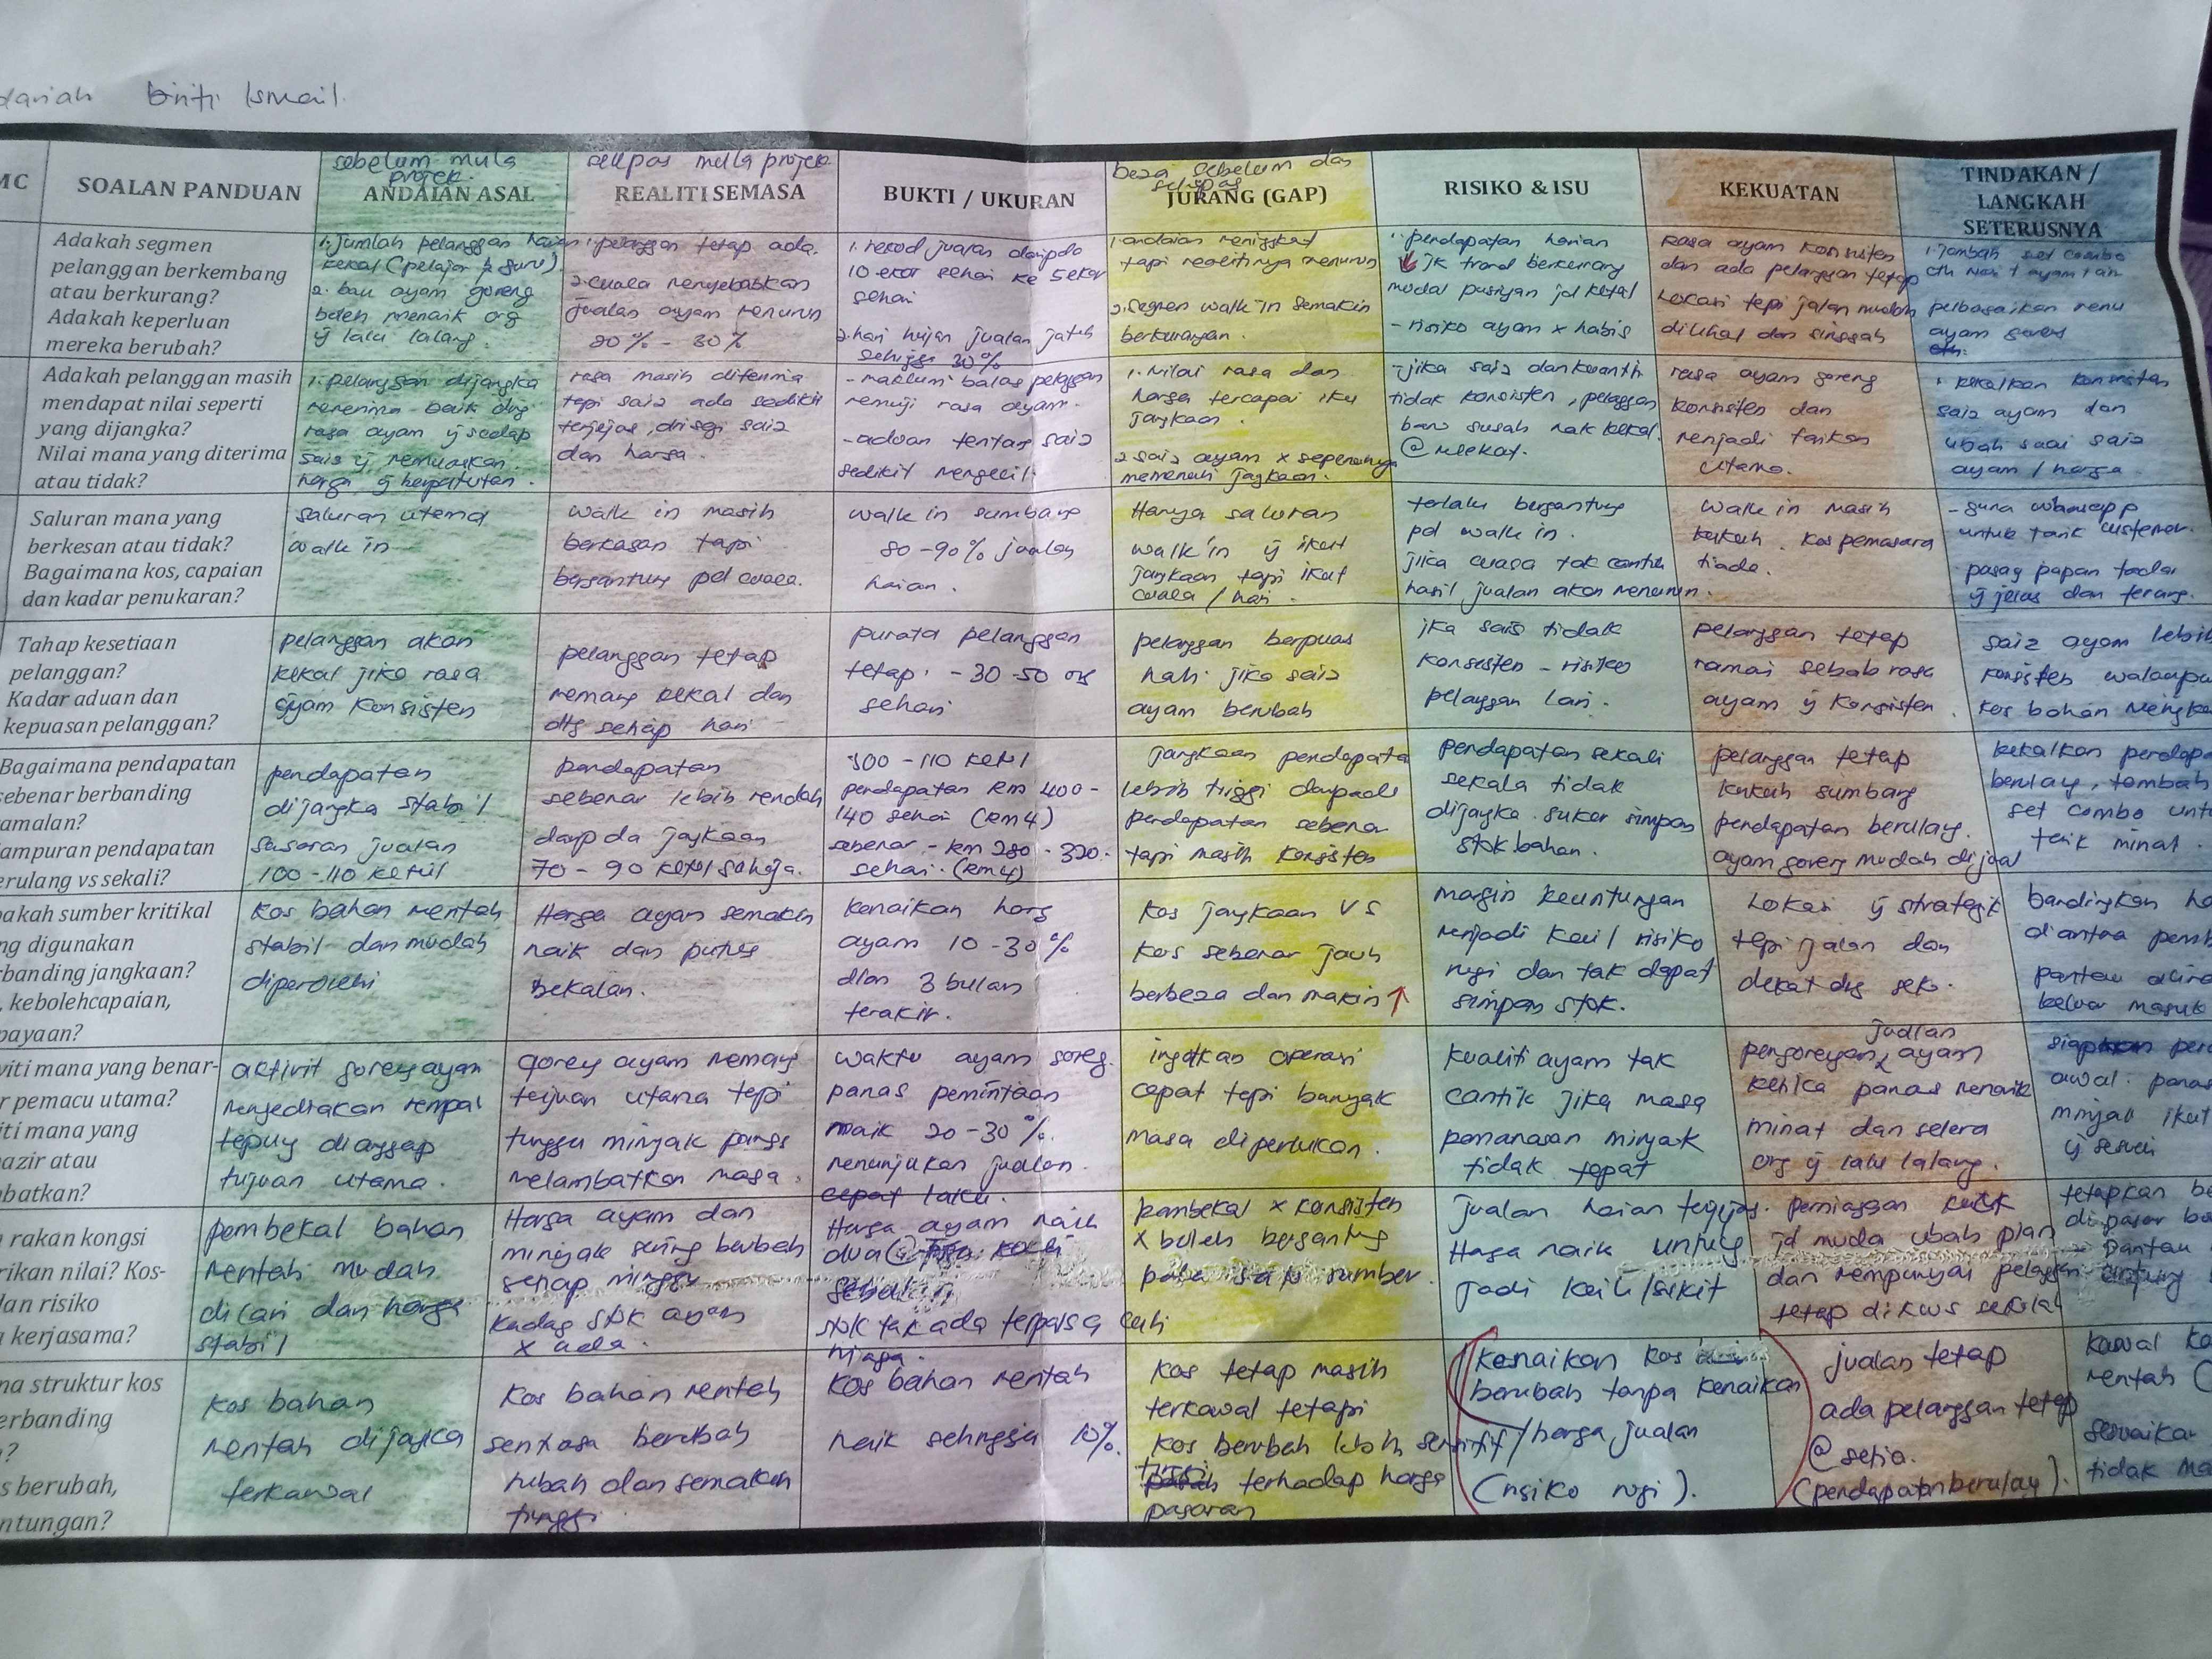 binti Ismail.
MC
SOALAN PANDUAN
sebelum mula
projek.
ANDAIAN ASAL
selepas mula projek
REALITI SEMASA
BUKTI / UKURAN
beza sebelum dan
selepas
JURANG (GAP)
RISIKO & ISU
KEKUATAN
TINDAKAN /
LANGKAH
SETERUSNYA
Adakah segmen
pelanggan berkembang
atau berkurang?
Adakah keperluan
mereka berubah?
1. jumlah pelanggan harian
kekal (pelajar & guru).
2. bau ayam goreng
boleh menarik org
yg lalu lalang.
1. pelanggan tetap ada.
2. cuaca menyebabkan
jualan ayam menurun
20% - 30%
1. rekod jualan daripada
10 ekor sehari ke 5 ekor
sehari
2. hari hujan jualan jatuh
sehingga 30%
1. andaian meningkat
tapi realitinya menurun
2. segmen walk in semakin
berkurangan.
1. pendapatan harian
jk trend berkurang
modal pusingan jd kecil
- risiko ayam x habis
Rasa ayam konsisten
dan ada pelanggan tetap
Lokasi tepi jalan mudah
dilihat dan singgah
1. tambah set combo
cth nasi + ayam + air
pelbagaikan menu
ayam goreng
Adakah pelanggan masih
mendapat nilai seperti
yang dijangka?
Nilai mana yang diterima
atau tidak?
1. pelanggan dijangka
menerima baik dng
rasa ayam yg sedap
saiz yg memuaskan.
harga yg berpatutan.
rasa masih diterima
tapi saiz ada sedikit
terjejas, dri segi saiz
dan harga.
- maklum balas pelanggan
memuji rasa ayam.
- aduan tentang saiz
sedikit mengecil.
1. nilai rasa dan
harga tercapai ikut
jangkaan.
2 saiz ayam x sepenuhnya
memenuhi jangkaan.
- jika saiz dan kuantiti
tidak konsisten, pelanggan
baru susah nak kekal
@ melekat.
rasa ayam goreng
konsisten dan
menjadi tarikan
utama.
1. kekalkan konsisten
saiz ayam dan
ubah suai saiz
ayam / harga.
Saluran mana yang
berkesan atau tidak?
Bagaimana kos, capaian
dan kadar penukaran?
saluran utama
walk in
walk in masih
berkesan tapi
bergantung pd cuaca.
walk in sumbang
80 - 90% jualan
harian.
Hanya saluran
walk in yg ikut
jangkaan tapi ikut
cuaca / hari.
terlalu bergantung
pd walk in.
jika cuaca tak cantik
hasil jualan akan menurun.
walk in masih
kukuh. kos pemasara
tiada.
- guna whatsapp
untuk tarik customer.
pasang papan tanda
yg jelas dan terang.
Tahap kesetiaan
pelanggan?
Kadar aduan dan
kepuasan pelanggan?
pelanggan akan
kekal jika rasa
ayam konsisten
pelanggan tetap
memang kekal dan
dtg setiap hari
purata pelanggan
tetap - 30-50 org
sehari
pelanggan berpuas
hati jika saiz
ayam berubah
jka saiz tidak
konsisten - risiko
pelanggan lari.
pelanggan tetap
ramai sebab rasa
ayam yg konsisten.
saiz ayam lebih
konsisten walaupu
kos bahan mengka
Bagaimana pendapatan
sebenar berbanding
amalan?
ampuran pendapatan
erulang vs sekali?
pendapatan
dijangka stabil
sasaran jualan
100 - 110 ketul
pendapatan
sebenar lebih rendah
darp da jangkaan
70 - 90 ketul sahaja.
100 - 110 ketul
pendapatan RM 400 -
140 sehari (RM4)
sebenar - RM 280 - 320.
sehari. (RM4)
jangkaan pendapata
lebih tinggi daripada
pendapatan sebenar
tapi masih konsisten
pendapatan sekali
sekala tidak
dijangka. sukar simpan
stok bahan.
pelanggan tetap
kukuh sumbang
pendapatan berulang.
ayam goreng mudah dijual
kekalkan pendapa
berulang, tambah
set combo untu
tarik minat.
akah sumber kritikal
ng digunakan
rbanding jangkaan?
, kebolehcapaian,
payaan?
kos bahan mentah
stabil dan mudah
diperolehi
Harga ayam semakin
naik dan putus
bekalan.
kenaikan harg
ayam 10 - 30%
dlam 3 bulan
terakir.
kos jangkaan VS
kos sebenar jauh
berbeza dan makin ↑
margin keuntungan
menjadi kecil risiko
rugi dan tak dapat
simpan stok.
Lokasi yg strategik
tepi jalan dan
dekat dng sek.
bandingkan ha
diantra pemb
pantau alira
keluar masuk
viti mana yang benar-
r pemacu utama?
iti mana yang
azir atau
batkan?
aktivit goreng ayam
menyediakan rempah
tepung dianggap
tujuan utama.
goreng ayam memang
tujuan utama tapi
tunggu minyak panas
melambatkan masa.
waktu ayam goreng.
panas permintaan
naik 20 - 30%.
menunjukan jualan
cepat laku.
ingatkan operasi
cepat tapi banyak
masa diperlukan.
kualiti ayam tak
cantik jika masa
pemanasan minyak
tidak tepat
jualan
pengorengan ayam
ketika panas menarik
minat dan selera
org yg lalu lalang.
awal. panas
minyak ikut
yg sesuai
rakan kongsi
rikan nilai? Kos-
dan risiko
kerjasama?
pembekal bahan
mentah mudah
dicari dan harga
stabil
Harga ayam dan
minyak sering berubah
setiap minggu
kadag stok ayam
x ada.
Harga ayam naik
dua @ kali
sebulan
stok tak ada terpaksa cuti
niaga.
pembekal x konsisten
x boleh bergantung
pada satu sumber.
jualan harian terjejas.
Haga naik untung
jadi kecil/sikit
perniagaan kecik
jd muda ubah plan
dan mempunyai pelanggan
tetap dikws sekolah
tetapkan ba
Pantau
na struktur kos
erbanding
n?
s berubah,
ntungan?
kos bahan
mentah dijangka
terkawal
kos bahan mentah
sentiasa berubah
rubah dan semakin
tinggi.
kos bahan mentah
naik sehingga 10%.
kos tetap masih
terkawal tetapi
kos berubah lebih sensitif
terhadap harga
pasaran
kenaikan kos
berubah tanpa kenaikan
harga jualan
(risiko rugi).
jualan tetap
ada pelanggan tetap
@ setia.
(pendapatan berulang).
kawal ko
mentah (
sesuaika
tidak ma